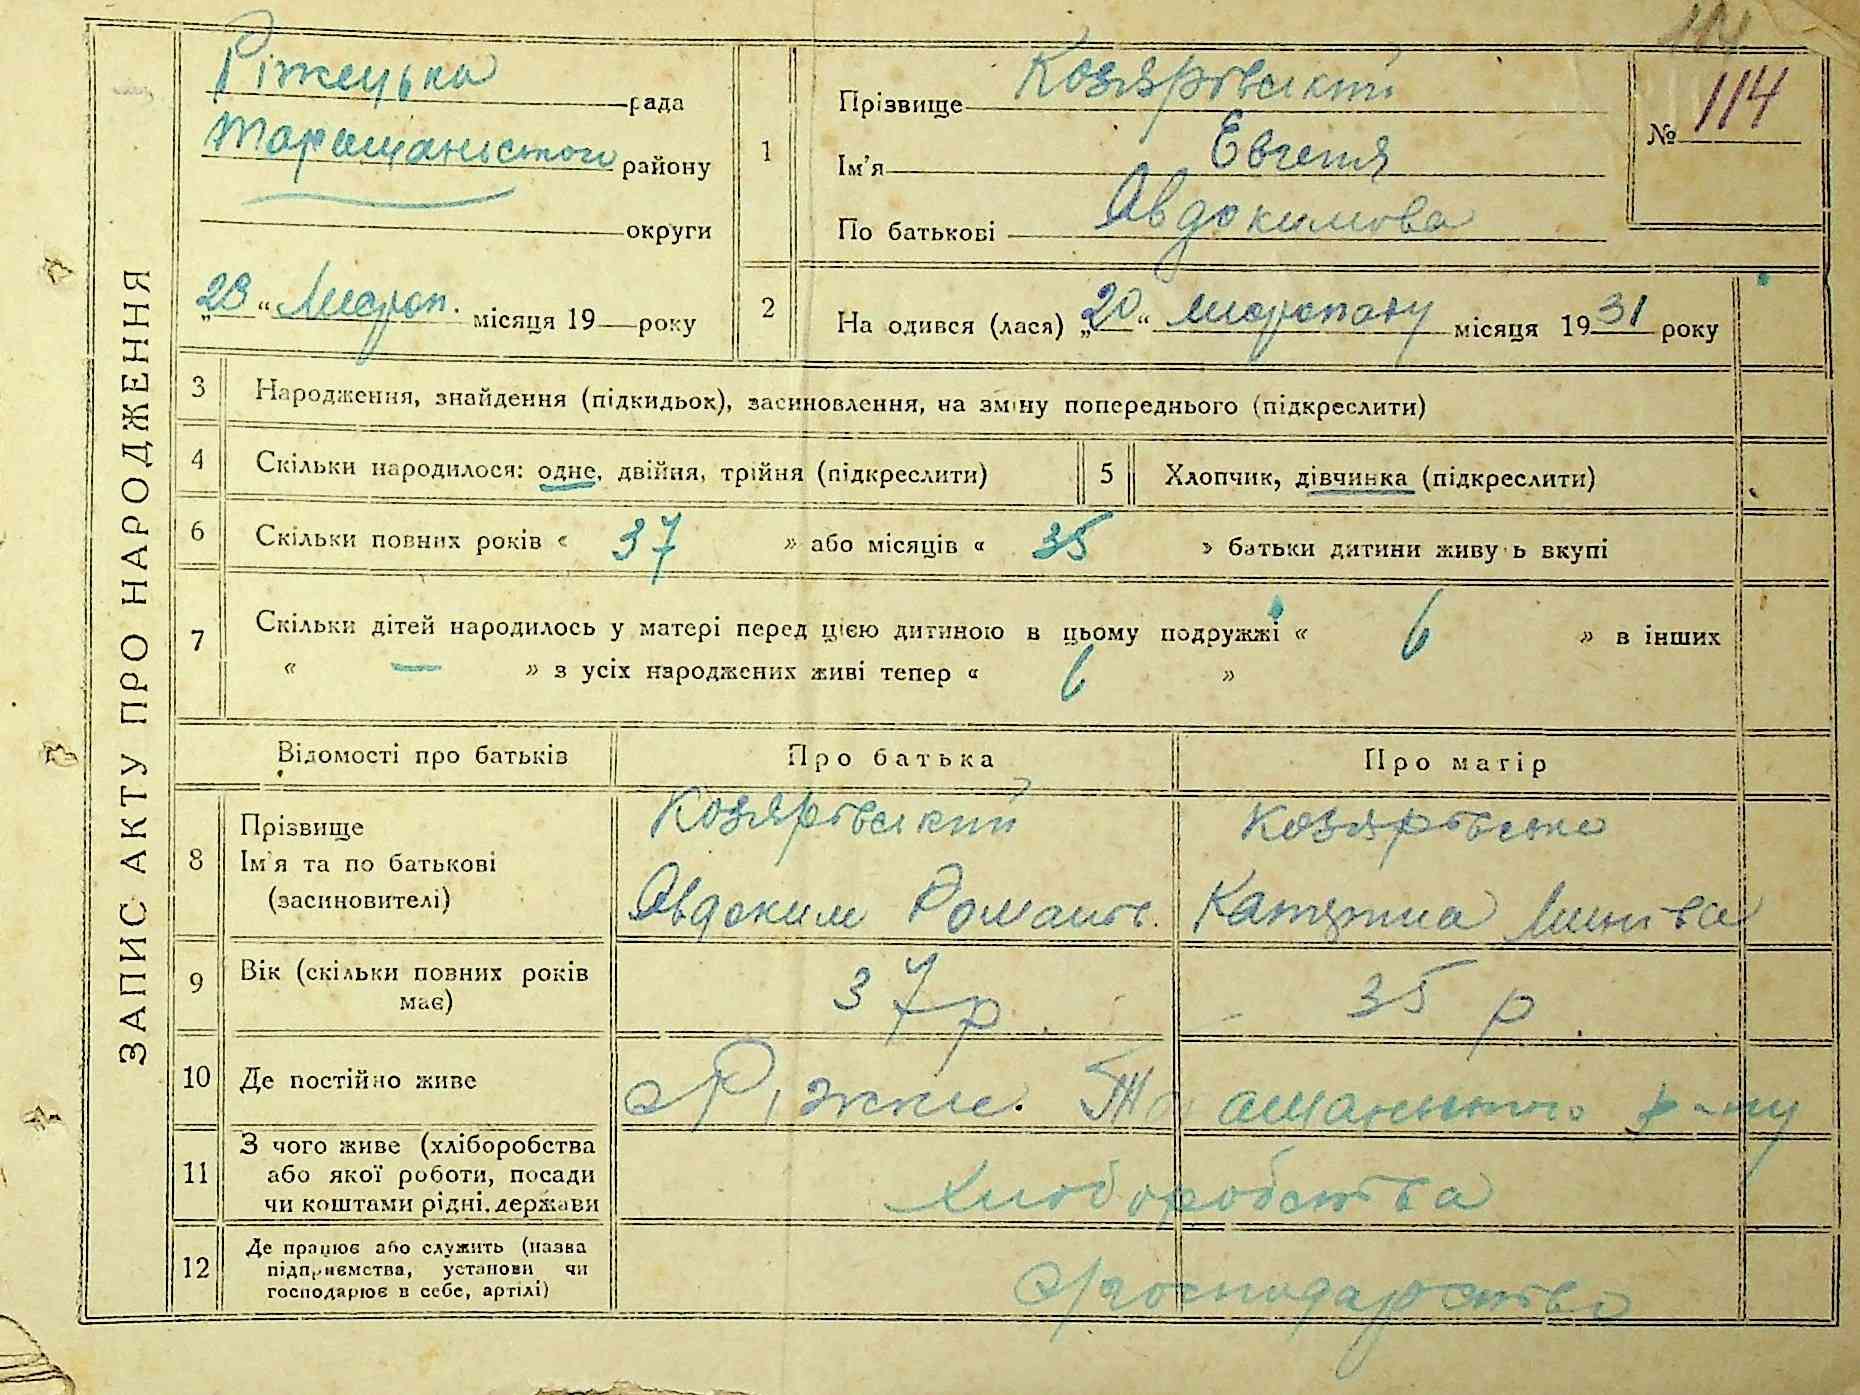 114
ЗАПИС АКТУ ПРО НАРОДЖЕННЯ
Ріжецька рада
Таращанського району
округи
„23“ Март. місяця 19 року
1
Прізвище Козярівський
Ім'я Евгенія
По батькові Авдокимова
№ 114
2
На одився (лася) „20“ мартату місяця 1931 року
3 Народження, знайдення (підкидьок), засиновлення, на зміну попереднього (підкреслити)
4 Скільки народилося: одне, двійня, трійня (підкреслити) 5 Хлопчик, дівчинка (підкреслити)
6 Скільки повних років « 37 » або місяців « 35 » батьки дитини живу ь вкупі
7 Скільки дітей народилось у матері перед цією дитиною в цьому подружжі « 6 » в інших
« — » з усіх народжених живі тепер « 6 »
Відомості про батьків Про батька Про матір
8 Прізвище Козярівський Козярівська
Ім'я та по батькові
(засиновителі) Авдоким Романів. Катерина
9 Вік (скільки повних років
має) 37 р. 35 р.
10 Де постійно живе с. Ріжки. р-ну
11 З чого живе (хліборобства
або якої роботи, посади
чи коштами рідні, держави Хліборобства
12 Де працює або служить (назва
підприємства, установи чи
господарює в себе, артілі) господарство